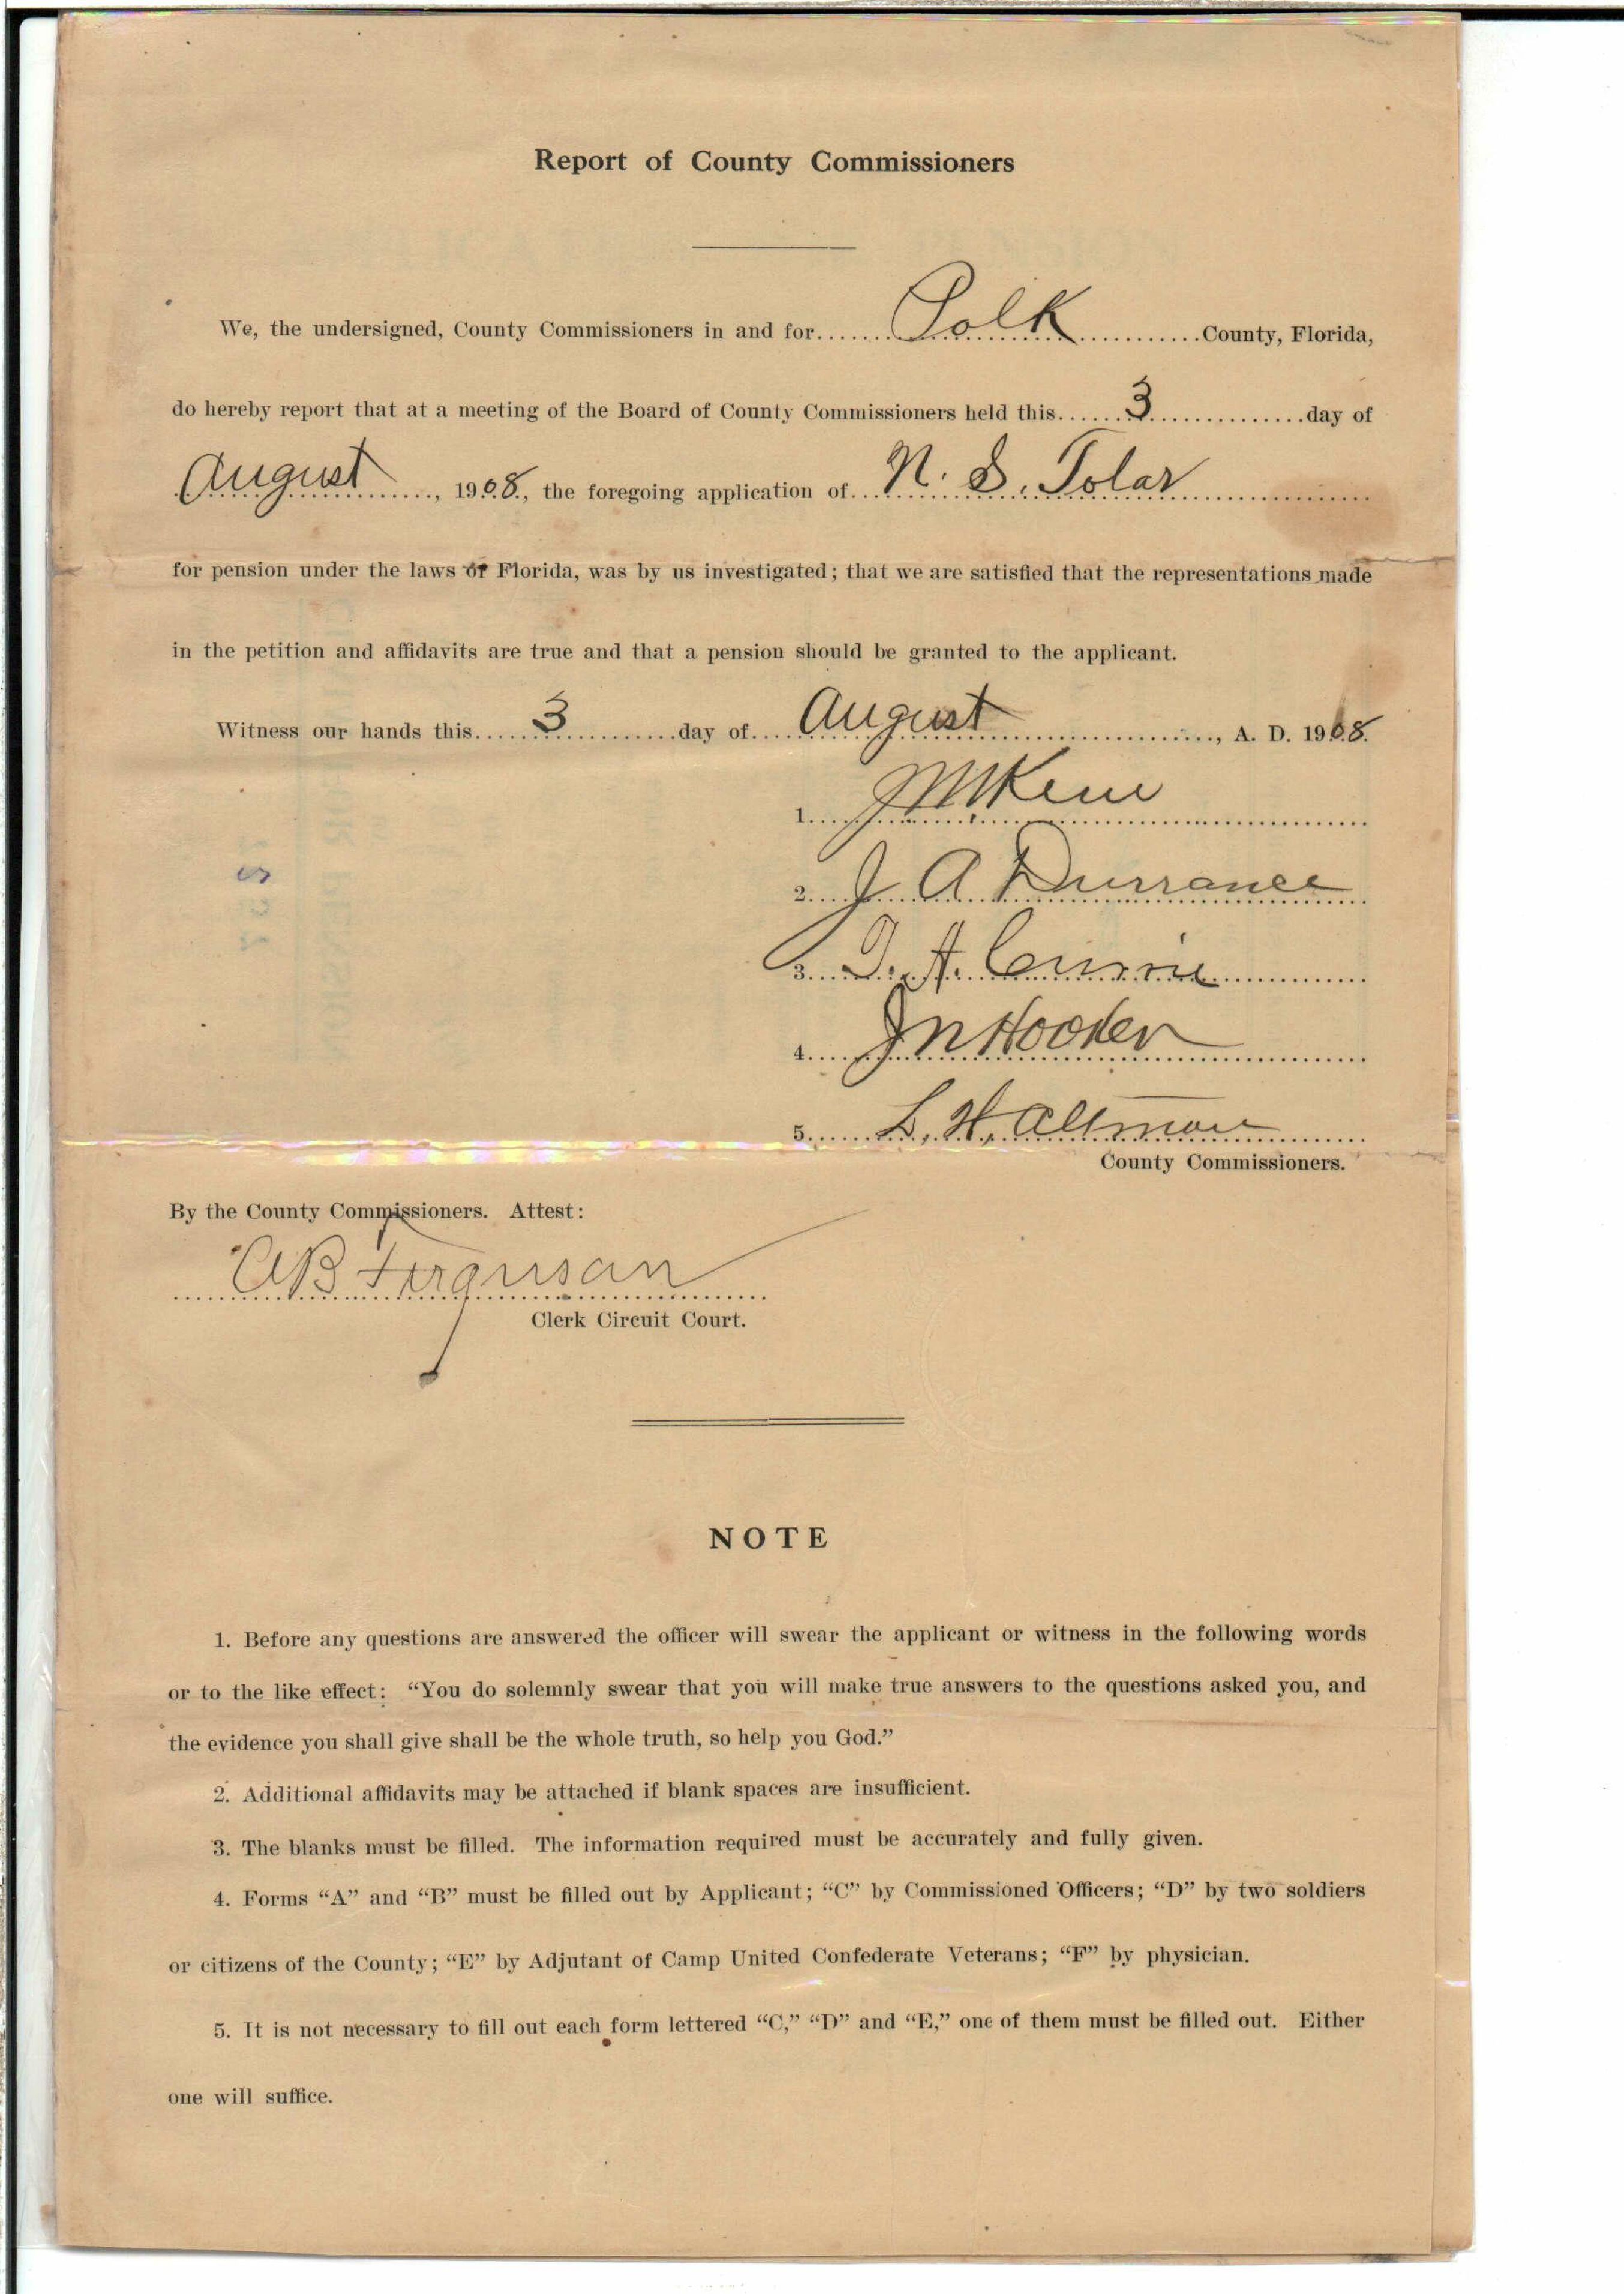 Report of County Commissioners
We, the undersigned, County Commissioners in and for.......Polk...........County, Florida,
do hereby report that at a meeting of the Board of County Commissioners held this......3..............day of
August......, 1908., the foregoing application of...N. S. Tolar..................
for pension under the laws of Florida, was by us investigated; that we are satisfied that the representations made
in the petition and affidavits are true and that a pension should be granted to the applicant.
Witness our hands this.....3...........day of....August...................., A. D. 1908.
1.
2....J A Durrance
3....
4.....J N Hooker
5......L. H. Altman
County Commissioners.
By the County Commissioners. Attest:
A B Ferguson
Clerk Circuit Court.
NOTE
1. Before any questions are answered the officer will swear the applicant or witness in the following words
or to the like effect: “You do solemnly swear that you will make true answers to the questions asked you, and
the evidence you shall give shall be the whole truth, so help you God.”
2. Additional affidavits may be attached if blank spaces are insufficient.
3. The blanks must be filled. The information required must be accurately and fully given.
4. Forms “A” and “B” must be filled out by Applicant; “C” by Commissioned Officers; “D” by two soldiers
or citizens of the County; “E” by Adjutant of Camp United Confederate Veterans; “F” by physician.
5. It is not necessary to fill out each form lettered “C,” “D” and “E,” one of them must be filled out. Either
one will suffice.